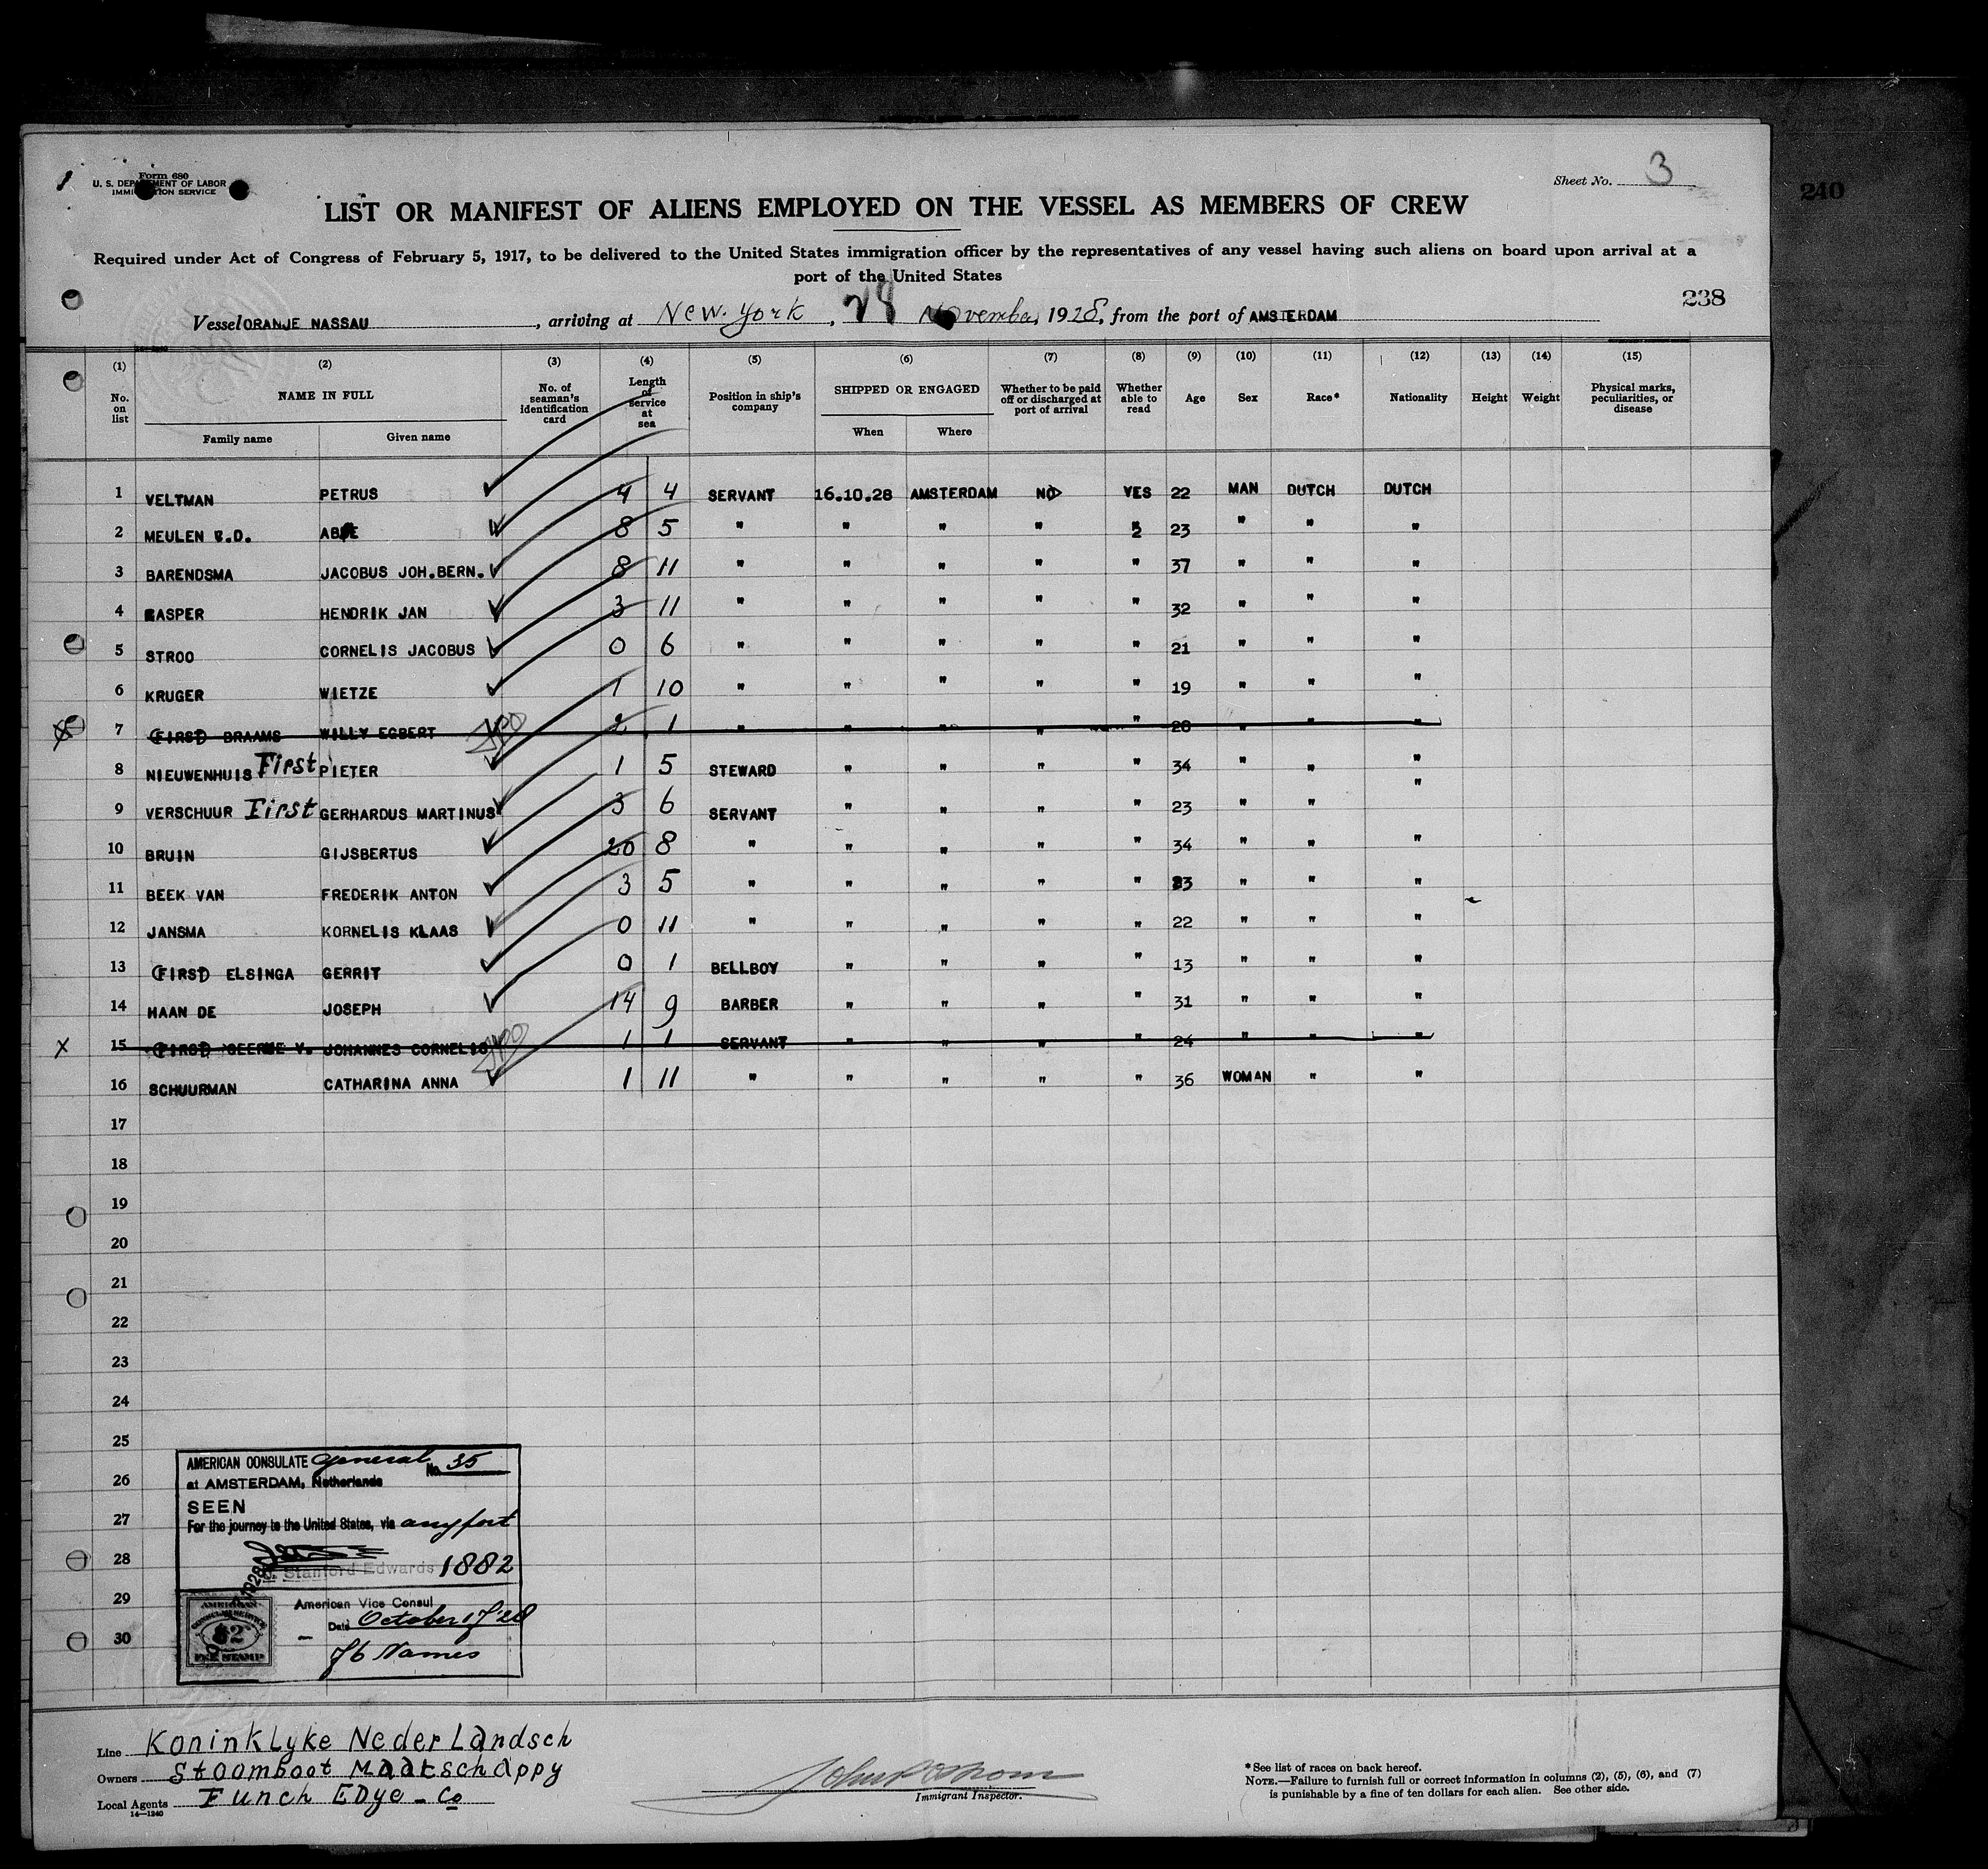 Form 680
U. S. DEPARTMENT OF LABOR
IMMIGRATION SERVICE
Sheet No. 3
240
LIST OR MANIFEST OF ALIENS EMPLOYED ON THE VESSEL AS MEMBERS OF CREW
Required under Act of Congress of February 5, 1917, to be delivered to the United States immigration officer by the representatives of any vessel having such aliens on board upon arrival at a
port of the United States
238
Vessel ORANJE NASSAU, arriving at New York, 28 November, 1928, from the port of AMSTERDAM
(1) (2) (3) (4) (5) (6) (7) (8) (9) (10) (11) (12) (13) (14) (15)
No. on list NAME IN FULL Family name Given name No. of seaman's identification card Length of service at sea Position in ship's company SHIPPED OR ENGAGED When Where Whether to be paid off or discharged at port of arrival Whether able to read Age Sex Race* Nationality Height Weight Physical marks, peculiarities, or disease
1 VELTMAN PETRUS 4 4 SERVANT 16.10.28 AMSTERDAM NO YES 22 MAN DUTCH DUTCH
2 MEULEN V.D. 8 5 " " " " " 23 " " "
3 BARENDSMA JACOBUS JOH.BERN. 8 11 " " " " " 37 " " "
4 HENDRIK JAN 3 11 " " " " " 32 " " "
5 STROO CORNELIS JACOBUS 0 6 " " " " " 21 " " "
6 KRUGER WIETZE 1 10 " " " " " 19 " " "
7 (FIRST) BRAAMS WILLY EGBERT 2 1 " " " " " 28 " " "
8 NIEUWENHUIS First PIETER 1 5 STEWARD " " " " 34 " " "
9 VERSCHUUR First GERHARDUS MARTINUS 3 6 SERVANT " " " " 23 " " "
10 BRUIN GIJSBERTUS 20 8 " " " " " 34 " " "
11 BEEK VAN FREDERIK ANTON 3 5 " " " " " 23 " " "
12 JANSMA KORNELIS KLAAS 0 11 " " " " " 22 " " "
13 (FIRST) ELSINGA GERRIT 0 1 BELLBOY " " " " 13 " " "
14 HAAN DE JOSEPH 14 9 BARBER " " " " 31 " " "
15 (FIRST) V. JOHANNES CORNELIS 1 1 SERVANT " " " " 24 " " "
16 SCHUURMAN CATHARINA ANNA 1 11 " " " " " 36 WOMAN " "
17
18
19
20
21
22
23
24
25
26
27
28
29
30
AMERICAN CONSULATE General No. 35
at AMSTERDAM, Netherlands
SEEN
For the journey to the United States, via any port
Stanford Edwards 1882
American Vice Consul
Date October 17'28
76 Names
AMERICAN
CONSULAR SERVICE
$2
FEE STAMP
Line Koninklyke Nederlandsch
Owners Stoomboot Maatschappy
Local Agents Funch Edye - Co
14-1240
Immigrant Inspector.
*See list of races on back hereof.
NOTE.—Failure to furnish full or correct information in columns (2), (5), (6), and (7)
is punishable by a fine of ten dollars for each alien. See other side.